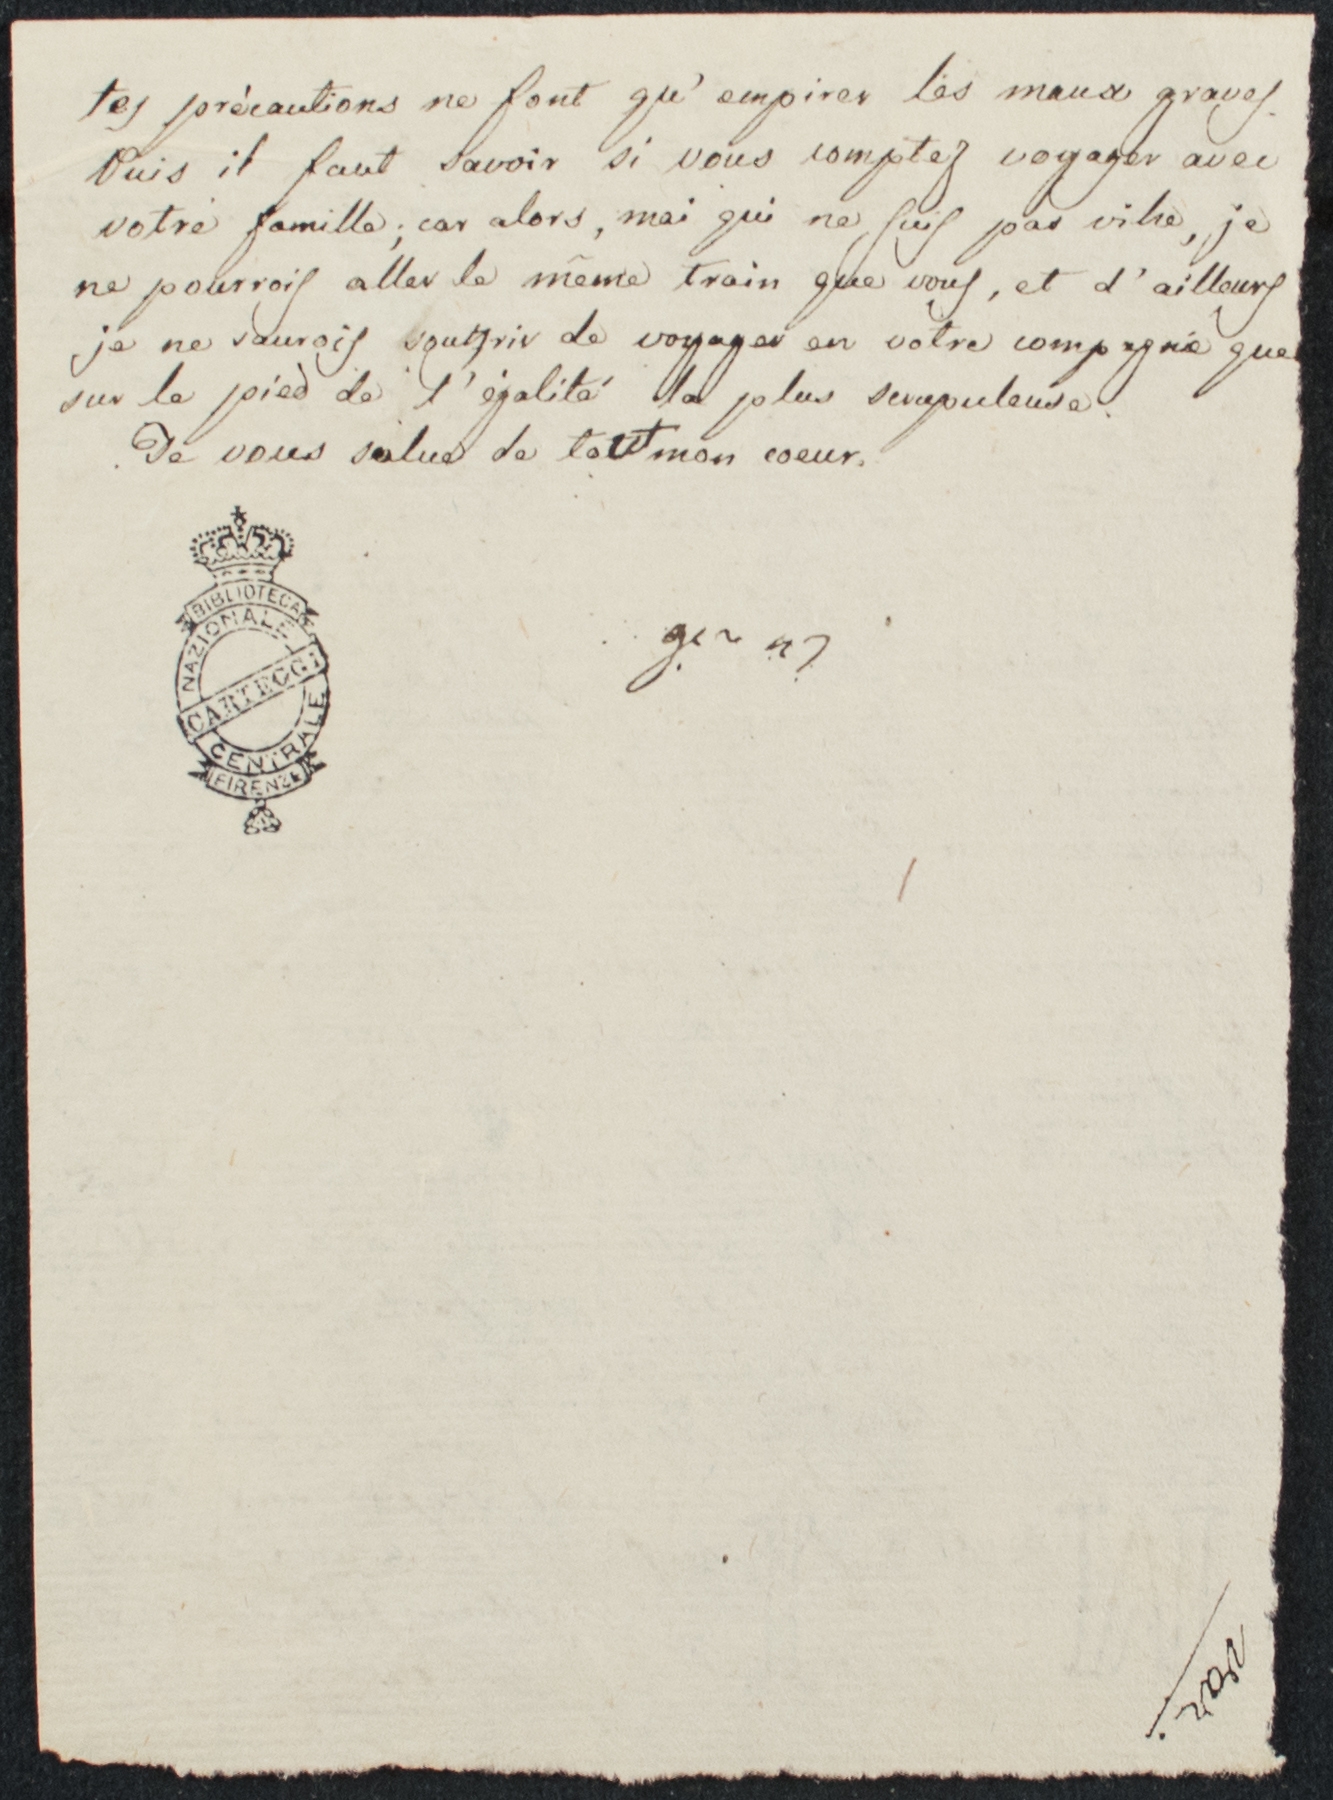 tes précautions ne font qu'empirer les maux graves.
Puis il faut savoir si vous comptez voyager avec
votre famille; car alors, moi qui ne suis pas riche, je
ne pourrois aller le même train que vous, et d'ailleurs
je ne saurois souffrir de voyager en votre compagnie que
sur le pied de l'égalité la plus scrupuleuse.
Je vous salue de tout mon coeur.
BIBLIOTECA
NAZIONALE
CARTEGGI
CENTRALE
FIRENZE